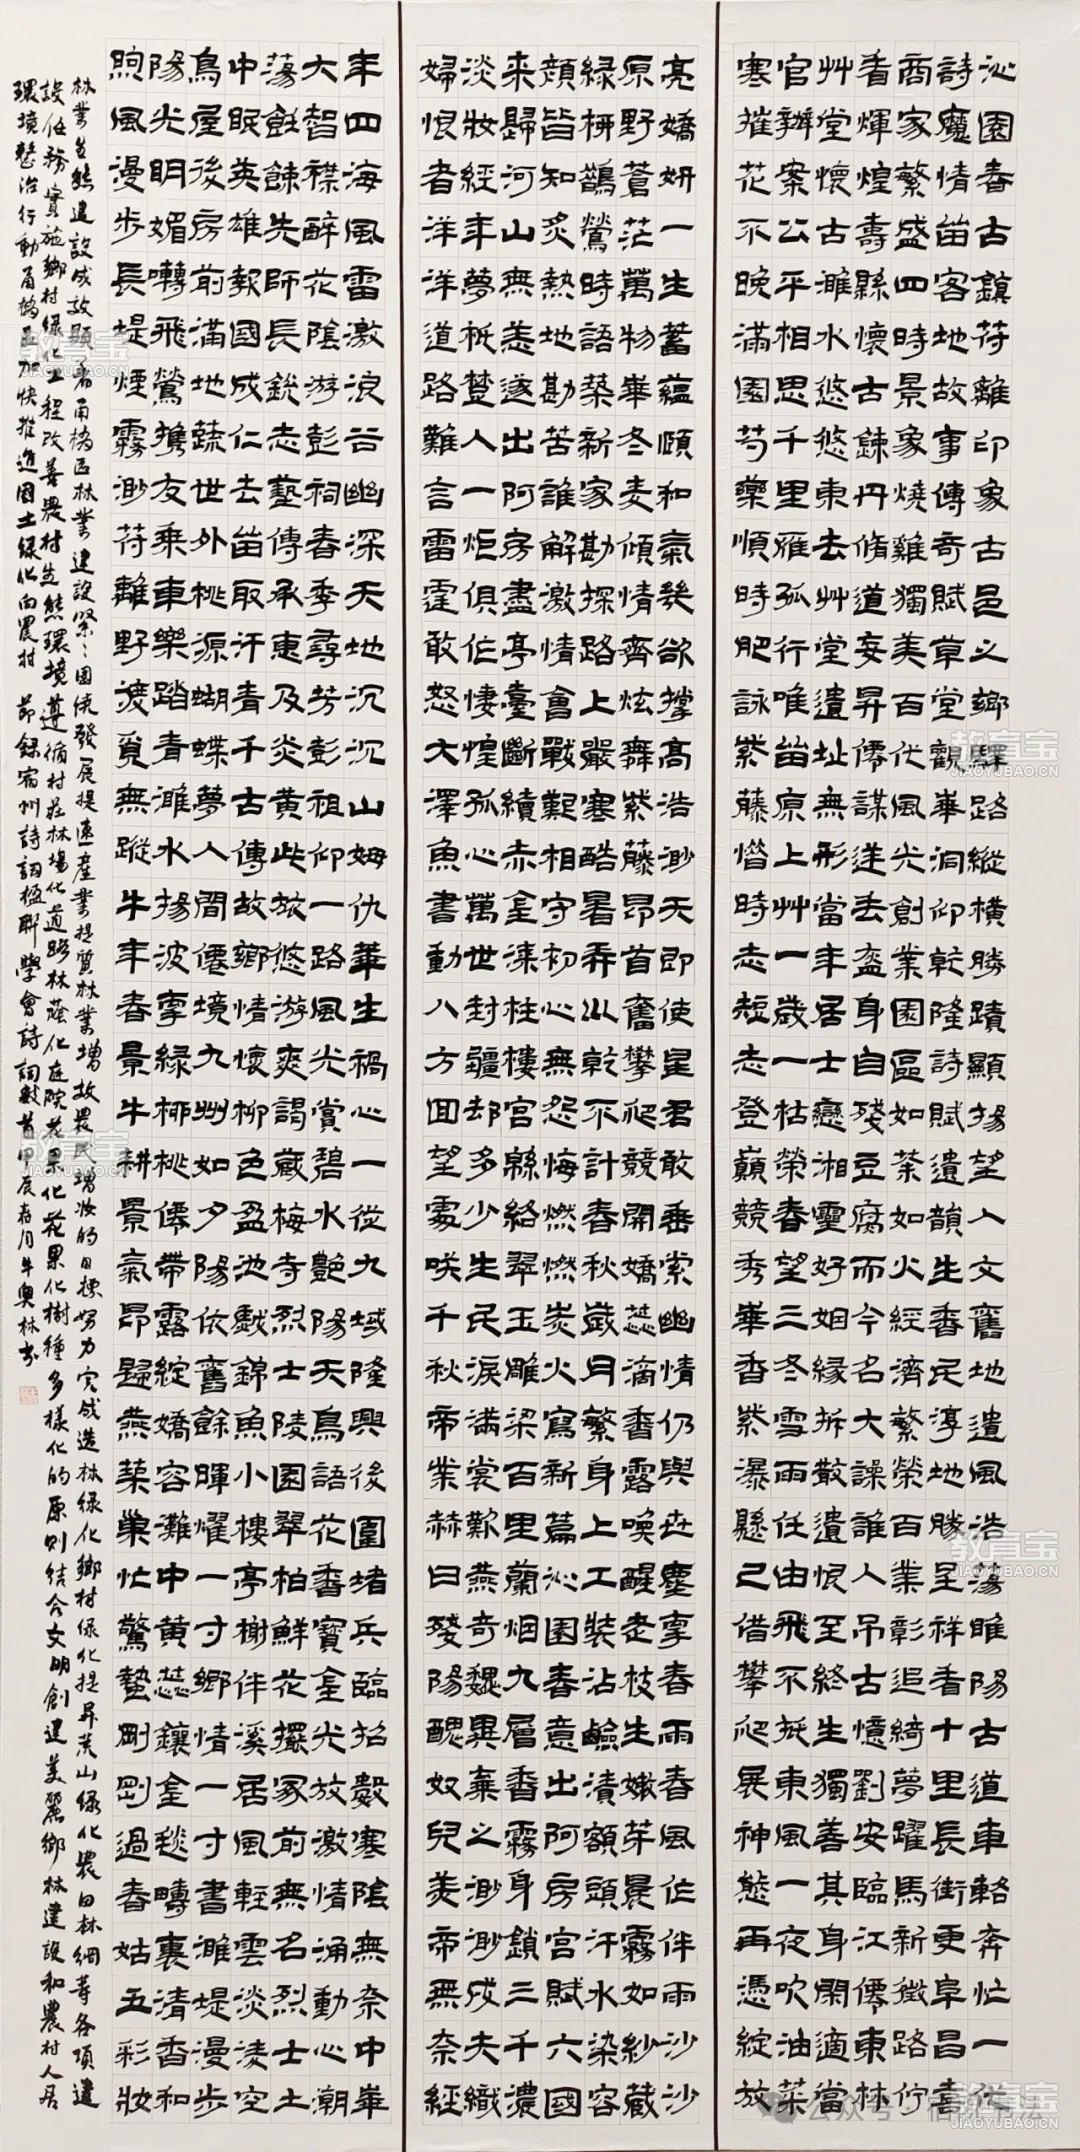 沁園春古鎮苻離印象古邑之鄉驛路縱橫勝蹟顯揚望人文舊地遺風浩蕩睢陽古道車輅奔忙一代
詩魔情留客地故事傳奇賦草堂觀華洞仰乾隆詩賦遺韻生香民淳地勝呈祥看十里長街更阜昌喜
商家繁盛四時景象燒雞獨美百代風光創業園區如荼如火經濟繁榮百業彰追綺夢躍馬新徵路佇
看輝煌壽縣懷古鍊丹脩道妄昇僊謀逆丟盔身自殘豆腐而今名大譟誰人弔古憶劉安臨江僊東林
艸堂懷古濉水悠悠東去艸堂遺址無形當年居士戀湘靈好姻緣拆散遺恨至終生獨善其身閑適當
官辦案公平相思千里雁孤行唯留原上艸一歲一枯榮春望三冬雪雨任由飛不抵東風一夜吹油菜
寒摧花不晚滿園芍藥順時肥詠紫藤惜時志短志登巔競秀華香紫瀑懸己借攀爬展神態再憑綻放
亮嬌妍一生蓄蘊頤和氣幾欲撐高浩渺天即使星君敢垂索幽情仍與卋塵享春雨春風作伴雨沙沙
原野蒼茫萬物畢冬麦傾情齊炫舞紫藤昂首奮攀爬競開嬌蕊滴香露喚醒走枝生嫩芽晨霧如紗藏
綠柳鸛鶯時語築新家勘探路上嚴寒酷暑弄以乾不計春秋歲月繁身上工裝沾鹼漬額頭汗水染容
顏皆知炙熱地勘苦誰解激情會戰艱相守初心無怨悔燃燃炎火寫新篇沁園春意出阿房宮賦六國
来歸河山無恙遂出阿房盡亭臺斷續赤金漆柱樓宮緜絡翠玉雕梁百里蘭烟九層香霧身鎖三千濃
淡妝經年夢柢楚人一炬俱作悽惶孤心萬世封疆却多少生民淚滿裳歎燕奇魏異棄之渺渺戍夫織
婦恨者洋洋道路難言雷霆敢怒大澤魚書動八方回望處咲千秋帝業赫日殘陽醜奴兒美帝無奈經
年四海風雷激浪谷幽深天地沉沉山姆仇華生禍心一從九域隆興後圍堵兵臨掐轂寒陰無奈中華
大智襟醉花陰游彭祠春季尋芳彭祖仰一路風光賞碧水艷陽天鳥語花香寶金光放激情涌動心潮
蕩飪餗先師長銳志藝傳承惠及炎黃些旅悠游爽謁蔵梅寺烈士陵園翠柏鮮花擺冢前無名烈士土
中眠英雄報國成仁去留取汗青千古傳故鄉情懷柳色盈池戲錦魚小樓亭榭伴溪居風輕雲淡凌空
鳥屋後房前滿地蔬世外桃源蝴蝶夢人間僊境九州如夕陽依舊餘暉燿一寸鄉情一寸書濉堤漫步
陽光明媚囀飛鶯攜友乘車樂踏青濉水揚波享綠桃僊帶露綻嬌容灘中黃蕊鑲金毯疇裏清香和
煦風漫步長堤煙霧渺苻離野渡覓無蹤牛年春景牛耕景氣昂歸燕築巢忙驚蟄剛剛過春姑五彩妝
林業生態建設成效顯者甬橋區林業建設緊緊圍繞發展提速產業提質林業增效農民增收的目標努力完成造林綠化鄉村綠化提昇荒山綠化農田林網等各項建
設任務實施鄉村綠化工程改善農村生態環境遵循村莊林場化道路林蔭化庭院花果化花果化樹種多樣化的原則結合文明創建美麗鄉林建設和農村人居
環境整治行動甬橋區加快推進國土綠化向農村 節錄宿州詩詞楹聯學會詩詞數首甲辰春月牛奥林书
教育宝
JIAOYUBAO.CN
教育宝
JIAOYUBAO.CN
教育宝
JIAOYUBAO.CN
教育宝
JIAOYUBAO.CN
教育宝
JIAOYUBAO.CN